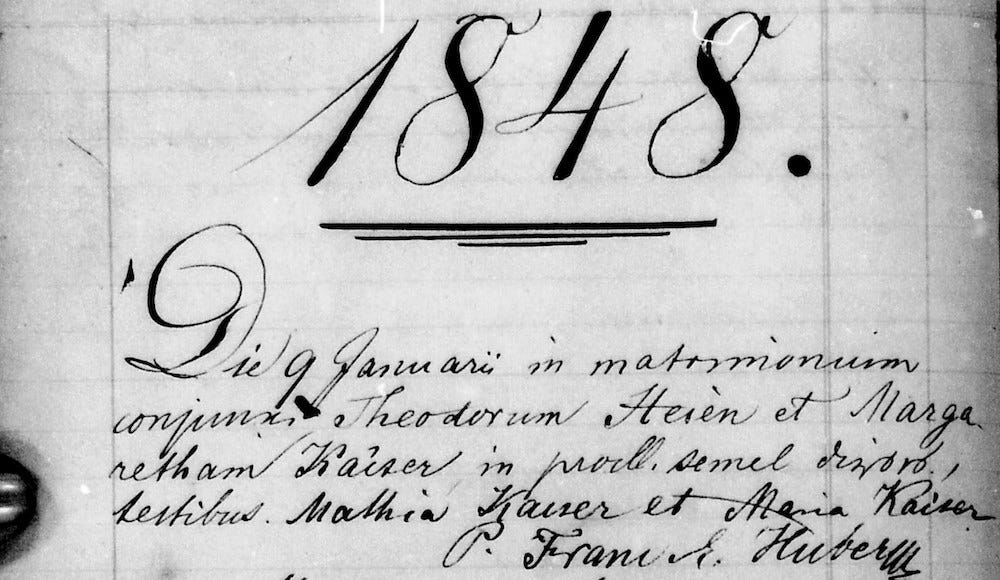 1848.
Die 9 Januarii in matrimonium
conjunxi Theodorum Heién et Marga
retham Kaiser, in procll. semel
testibus. Mathia Kaiser et Maria Kaiser
P. Franc. S. Huber